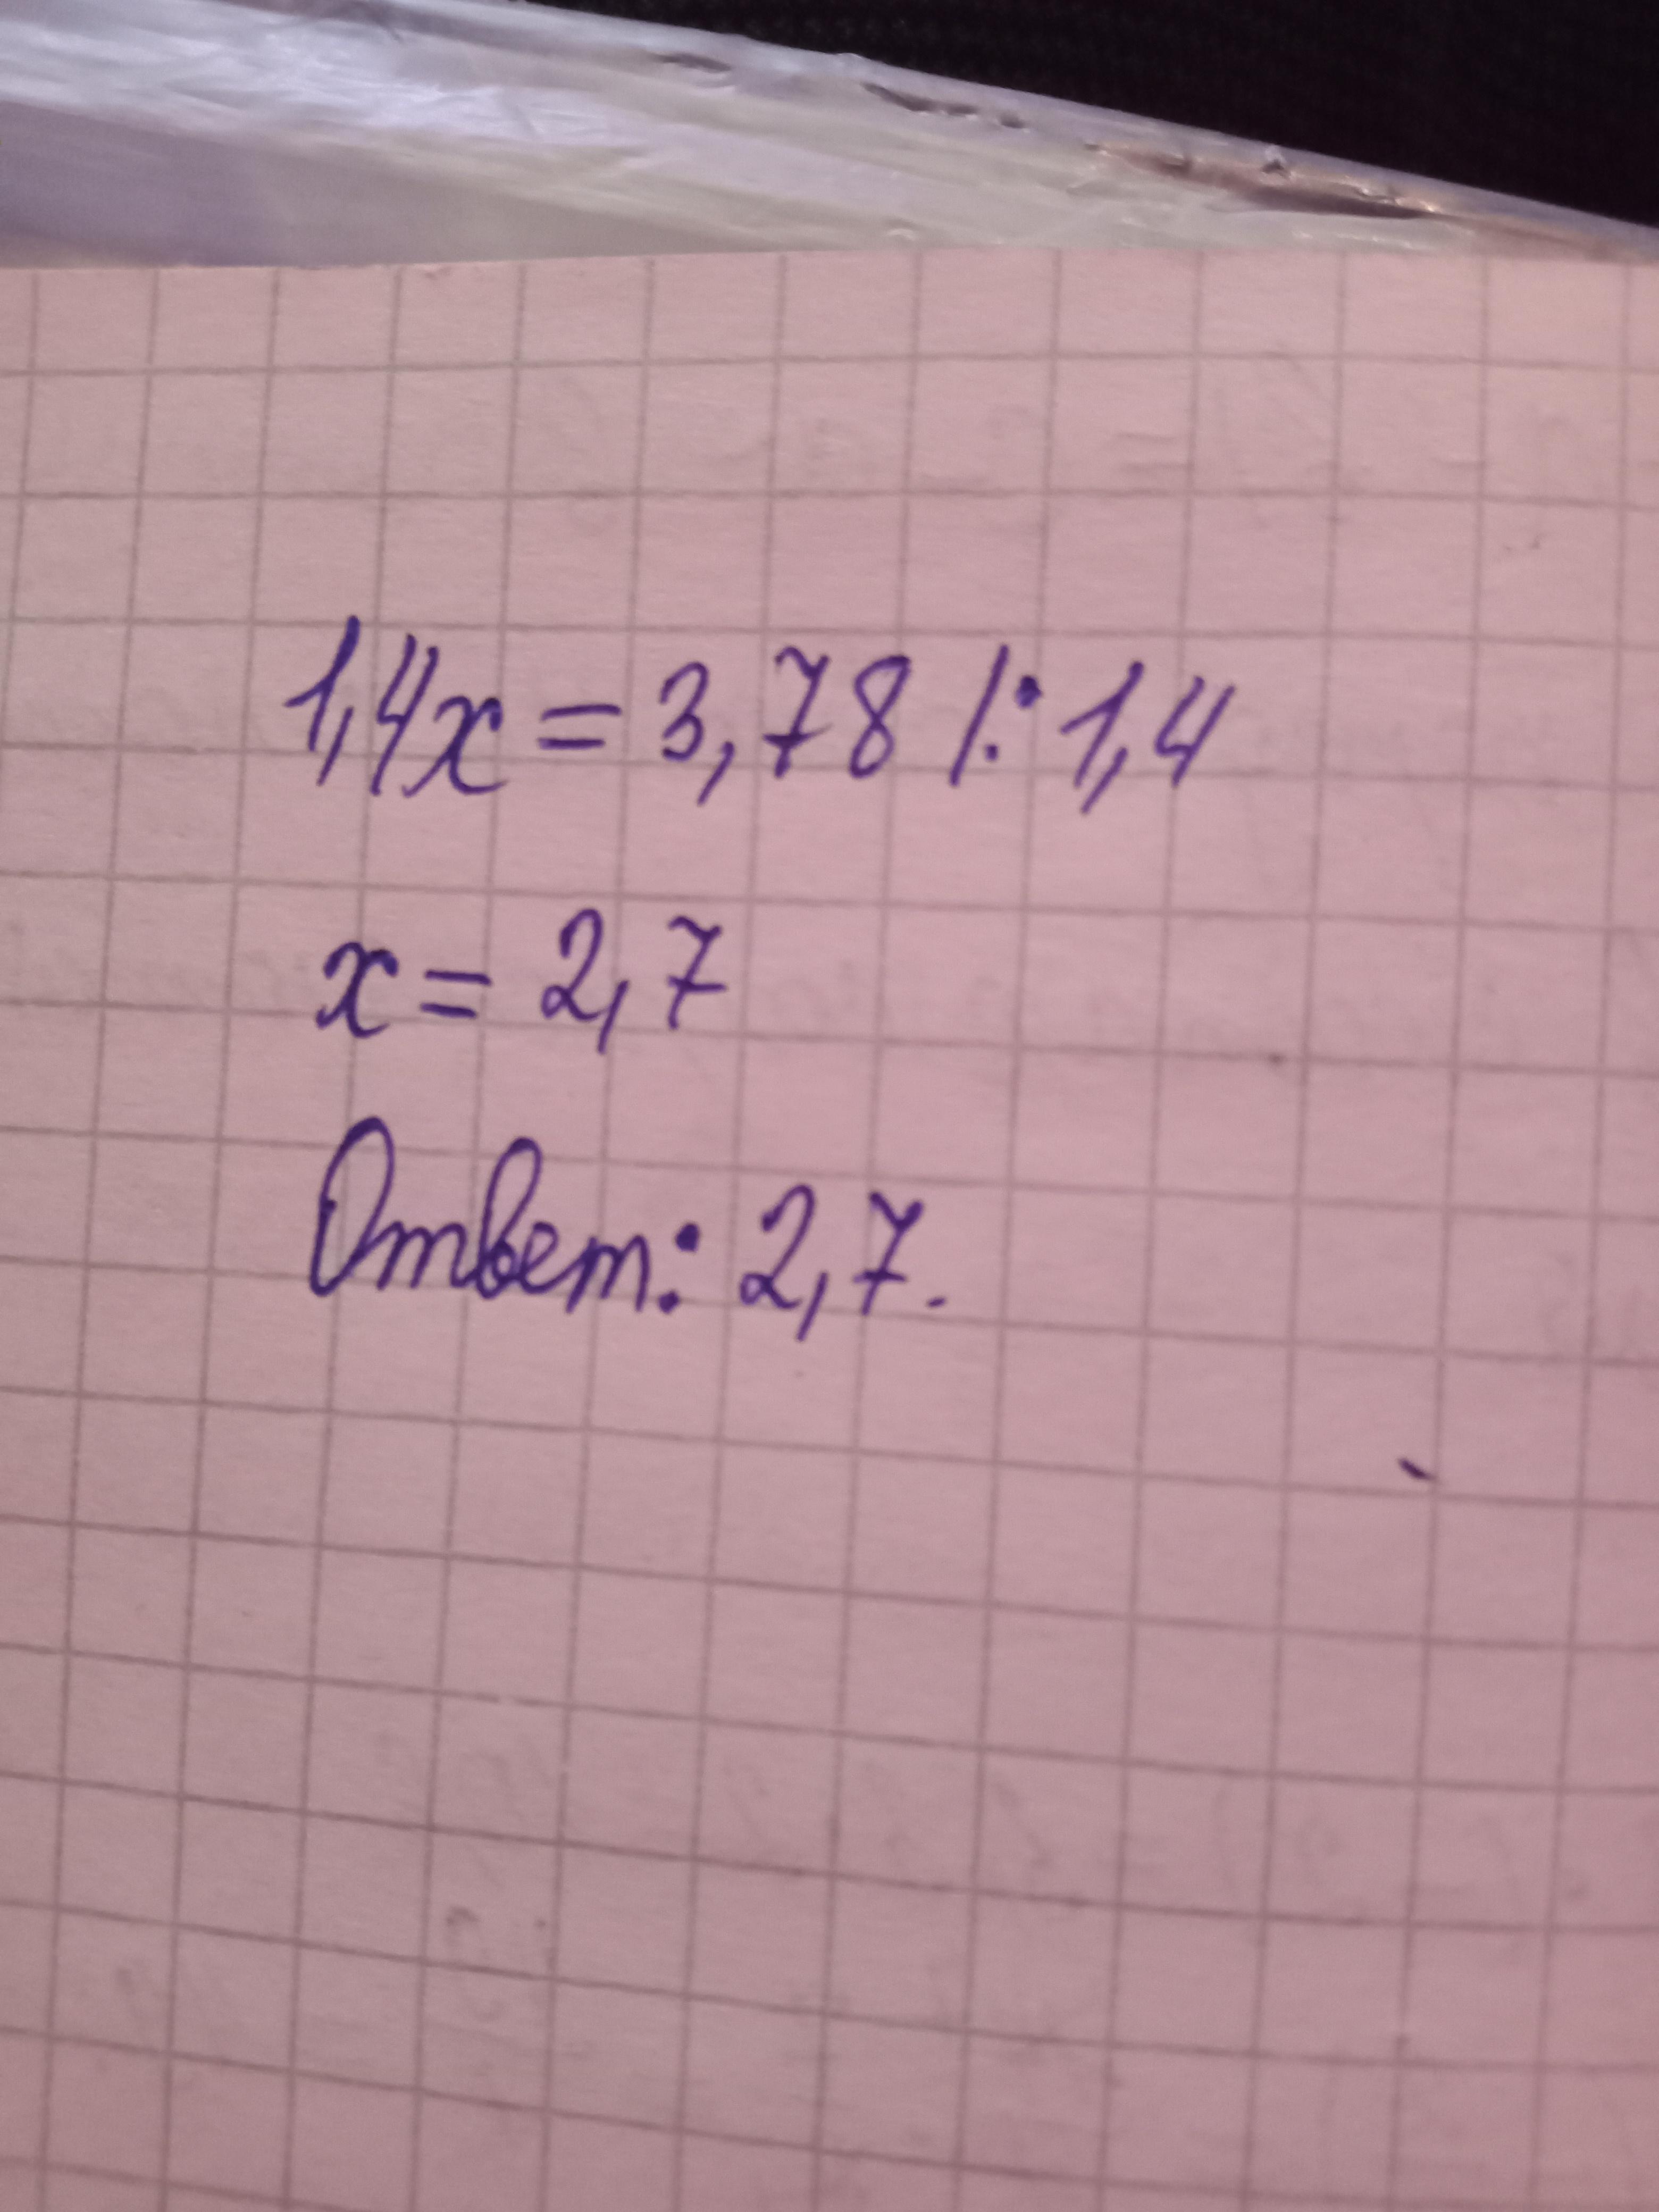 1,4x = 3,78 /: 1,4
x = 2,7
Ответ: 2,7.